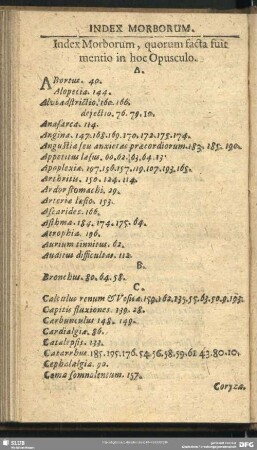 INDEX MORBORUM.
Index Morborum, quorum facta fuit
mentio in hoc Opusculo.
A.
ABortus. 40.
Alopecia. 144.
Alvi adstrictio. 160. 166.
dejectio. 76. 79. 10.
Anasarca. 114.
Angina. 147. 168. 169. 170. 172. 175. 174.
Angustia seu anxietas præcordiorum. 183. 185. 190.
Appetitus læsus. 60. 62. 63. 64. 13.
Apoplexia. 197. 156. 157. 19. 107. 193. 165.
Arthritis. 150. 124. 114.
Ardor stomachi. 29.
Arteriæ læsio. 153.
Ascarides. 166.
Asthma. 184. 174. 175. 64.
Atrophia. 196.
Aurium tinnitus. 62.
Auditus difficultas. 112.
B.
Bronchus. 80. 64. 58.
C.
Calculus renum & Vesicæ. 159. 162. 135. 55. 63. 50. 9. 193.
Capitis fluxiones. 139. 28.
Carbunculus 148. 149.
Cardialgia. 86.
Catalepsis. 133.
Catarrhus. 185. 195. 176. 54. 56. 58. 59. 62. 43. 80. 10.
Cephalalgia. 90.
Coma somnolentum. 157.
Coryza.
SLUB
DFG